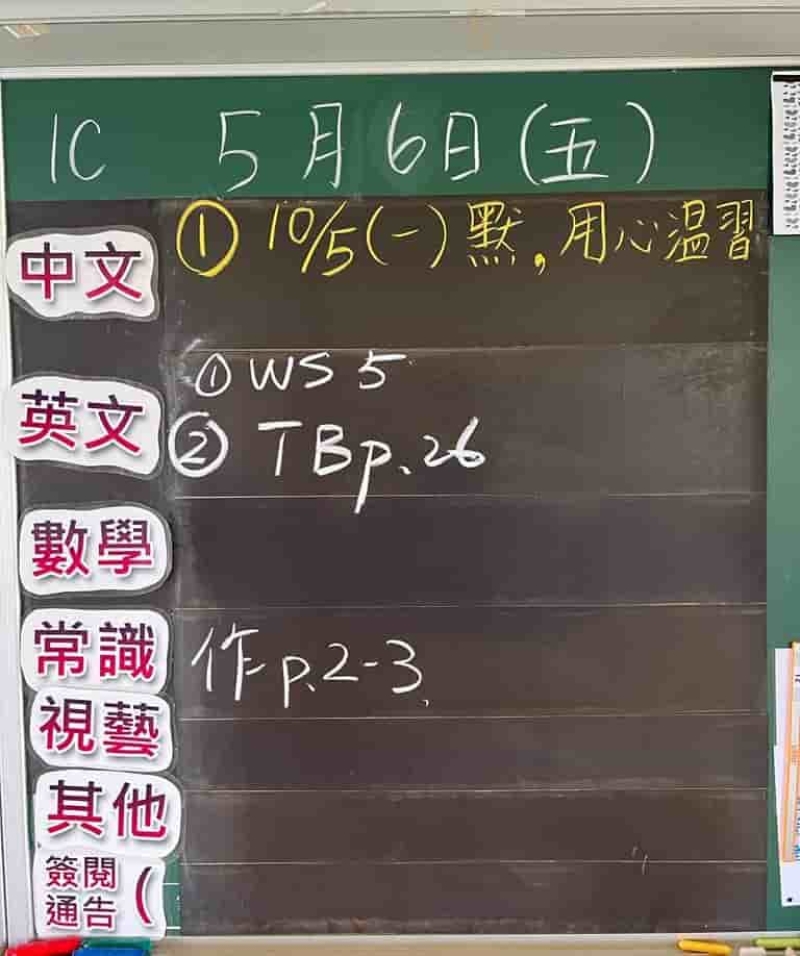 1C 5月6日(五)
中文 ① 10/5(一)默,用心温習
英文 ① WS 5
② TB p.26
數學
常識 作 p.2-3
視藝
其他
簽閱
通告 (